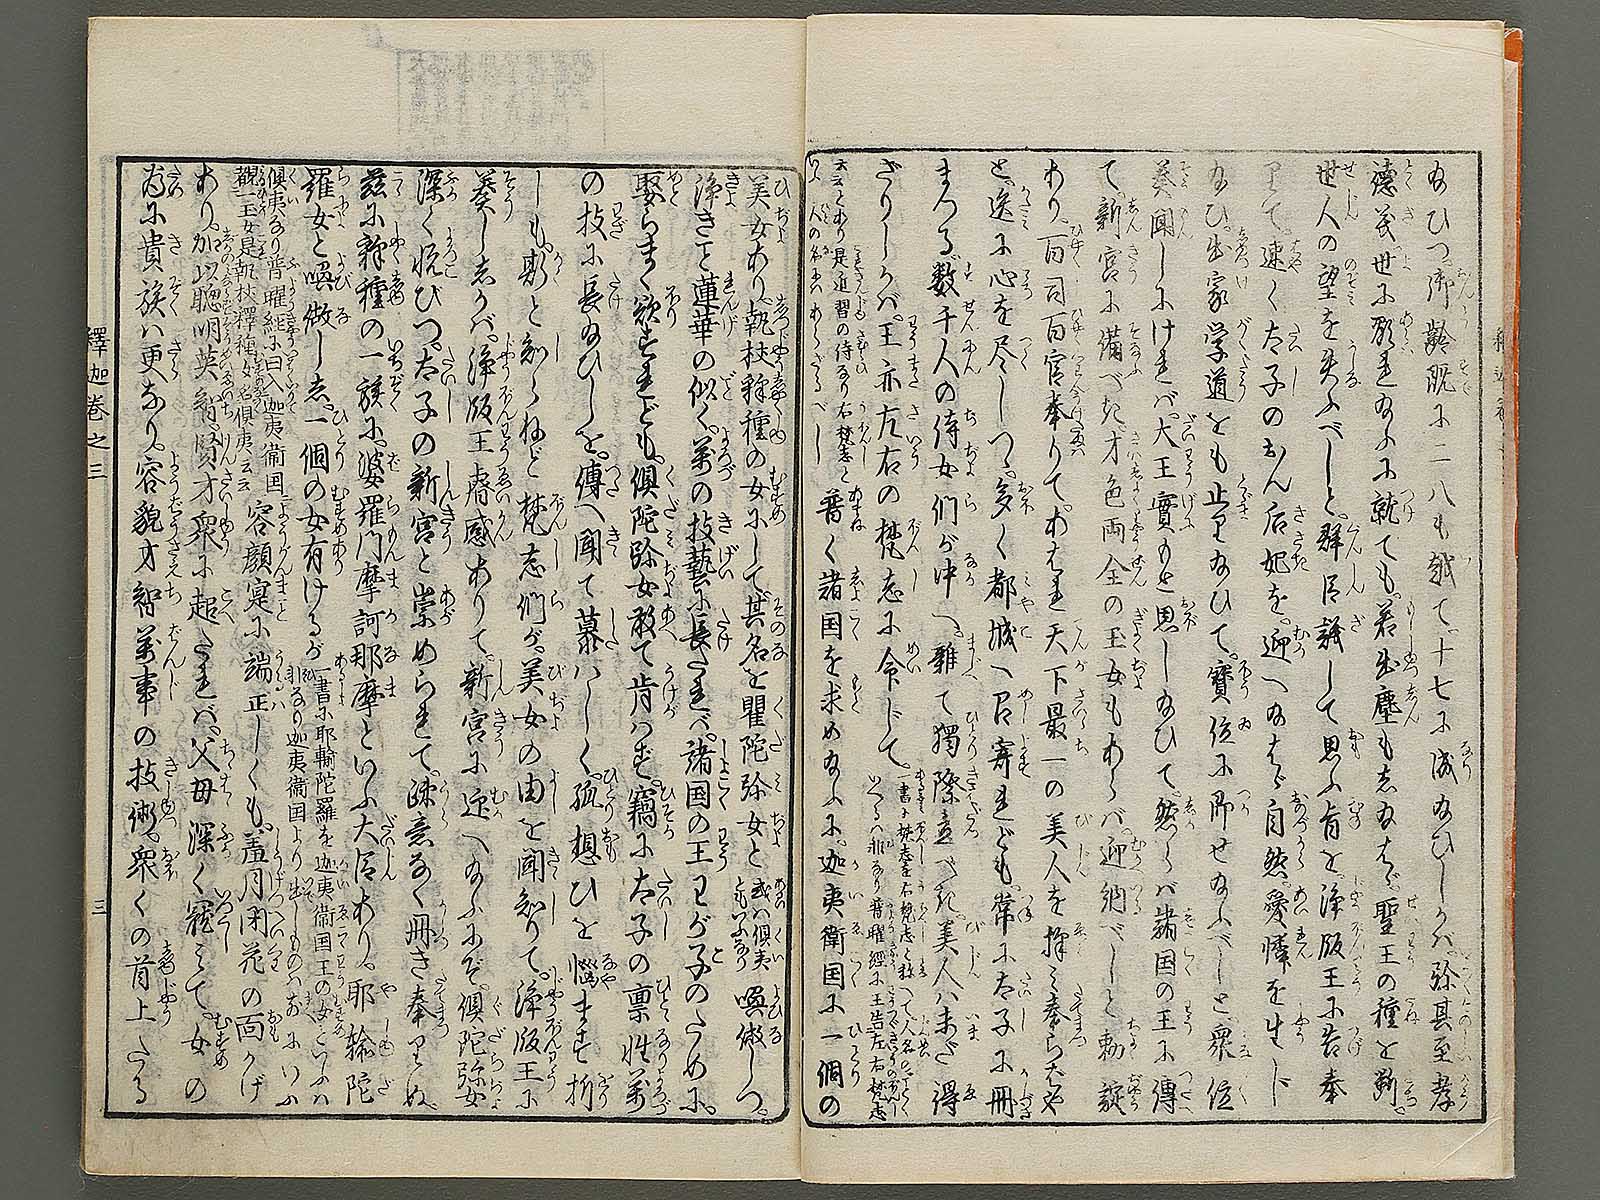 なひつ御齢既に二八も越て十七に成なひしかバ弥其至孝
徳義世に顕れなふに就ても若出塵もしなはゞ聖王の種を断
世人の望を失ふべしと群臣議して思ふ旨を浄飯王に告奉
りて速く太子のおん后妃を迎へなはゞ自然愛憐を生じ
なひ出家学道をも止りなひて宝位に即せなふべしと衆位
奏聞しにけれバ大王實もと思しなひて然らバ諸国の王に傳
て新宮に備べき才色両全の玉女もあらバ迎納べしと勅諚
あり百司百官奉りてあはれ天下最一の美人を择ミ奉らばや
と逸に心を尽しつゝ多く都城へ召寄れども常に太子に冊
まつる数千人の侍女們が中へ雑て獨際立べき美人ハ未だ得
ざりしかバ王亦左右の梵志に令じて
普く諸国を求めなふに迦夷衛国に一個の
美女あり執杖釋種の女にして其名を瞿陀弥女と或ハ俱夷ともいふなり喚做しつ
浄きこと蓮華の似く萬の技藝に長たれバ諸国の王わが子のために
娶らまく欲すれども俱陀弥女敢て肯はず竊に太子の稟性萬
の技に長なひしを傳へ聞て慕ハしく孤想ひを悩ます折
しも斯と知らねど梵志們が美女の由を聞知りて浄飯王に
奏ししかバ浄飯王睿感ありて新宮に迎へなふにぞ俱陀弥女
深く悦びつ太子の新宮と崇められて疎意なく冊き奉りぬ
茲に釋種の一族に婆羅門摩訶那摩といふ大臣あり耶輸陀
羅女と喚做しゝ一個の女有けるが一書に耶輸陀羅を迦夷衛国王の女といふハ非なり迦夷衛国より出しものハ
俱夷なり普曜経に曰入迦夷衛国覩一玉女是執杖釋種女名俱夷云云容顔寔に端正しくも羞月閉花の面かげ
あり加以聡明英智賢才衆に超たれバ父母深く寵ミて女の
為に貴族ハ更なり容貌才智萬事の技術衆くの首上たる
釋迦巻之三
三